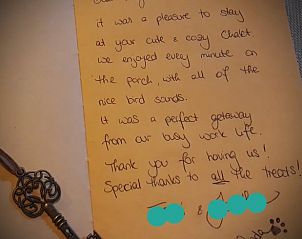 it was a pleasure to stay
at your cute & cozy Chalet.
we enjoyed every minute on
the porch, with all of the
nice bird sounds.
It was a perfect getaway
from our busy work life.
Thank you for having us!
Special thanks to all the treats!
&